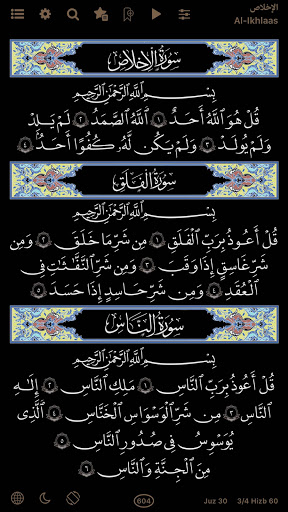 الإخلاص
Al-Ikhlaas
سُورَةُ الإِخْلَاصِ
بِسْمِ ٱللَّهِ ٱلرَّحْمَٰنِ ٱلرَّحِيمِ
قُلْ هُوَ ٱللَّهُ أَحَدٌ ١ ٱللَّهُ ٱلصَّمَدُ ٢ لَمْ يَلِدْ
وَلَمْ يُولَدْ ٣ وَلَمْ يَكُن لَّهُۥ كُفُوًا أَحَدٌۢ ٤
سُورَةُ الفَلَقِ
بِسْمِ ٱللَّهِ ٱلرَّحْمَٰنِ ٱلرَّحِيمِ
قُلْ أَعُوذُ بِرَبِّ ٱلْفَلَقِ ١ مِن شَرِّ مَا خَلَقَ ٢ وَمِن
شَرِّ غَاسِقٍ إِذَا وَقَبَ ٣ وَمِن شَرِّ ٱلنَّفَّٰثَٰتِ فِى
ٱلْعُقَدِ ٤ وَمِن شَرِّ حَاسِدٍ إِذَا حَسَدَ ٥
سُورَةُ النَّاسِ
بِسْمِ ٱللَّهِ ٱلرَّحْمَٰنِ ٱلرَّحِيمِ
قُلْ أَعُوذُ بِرَبِّ ٱلنَّاسِ ١ مَلِكِ ٱلنَّاسِ ٢ إِلَٰهِ
ٱلنَّاسِ ٣ مِن شَرِّ ٱلْوَسْوَاسِ ٱلْخَنَّاسِ ٤ ٱلَّذِى
يُوَسْوِسُ فِى صُدُورِ ٱلنَّاسِ ٥
مِنَ ٱلْجِنَّةِ وَٱلنَّاسِ ٦
604 Juz 30 3/4 Hizb 60